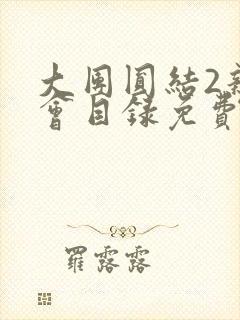 大團圓結2
會目錄免費
羅露露